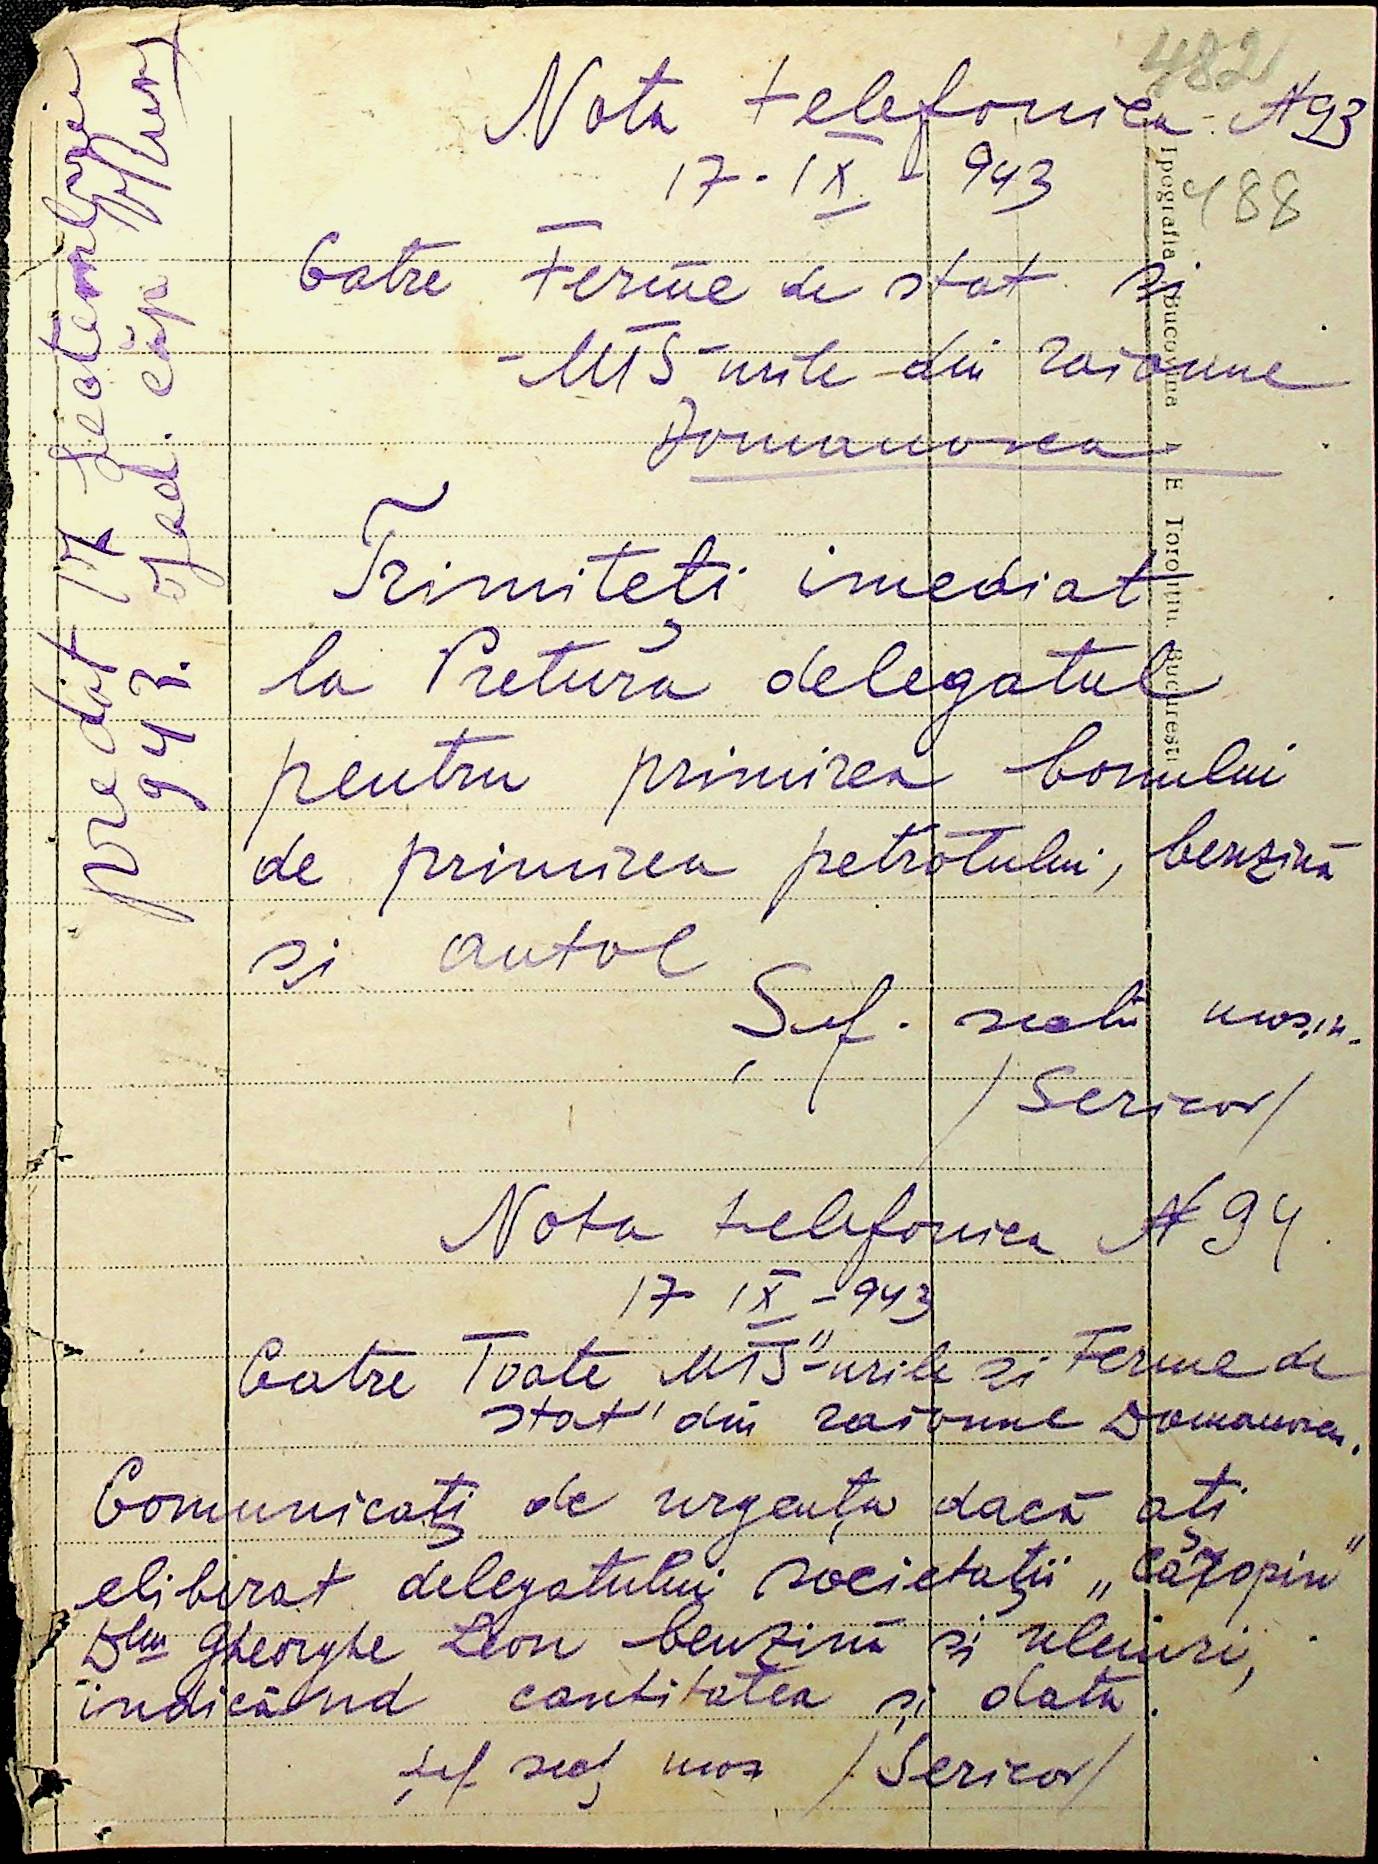 482
Nota telefonica N 93
17 · IX - 943
488
Catre Ferme de stat si
- MTS-urile din raionne
Domanovca
Trimiteți imediat
la Pretură delegatul
pentru primirea bonului
de primirea petrolului, benzină
și autol
Șef. secții
/Sericov/
Nota telefonica N 94
17 IX - 943
Catre Toate MTS"-urile si Ferme de
stat" din raionne Domanovca.
Comunicați de urgența dacă ați
eliberat delegatului societații
Dlui Gheorghe Leon benzină și uleiuri,
indicând cantitatea și data.
șef secț /Sericov/
predat 17
943.
Tipografia Bucovina I E Toroutiu Bucuresti